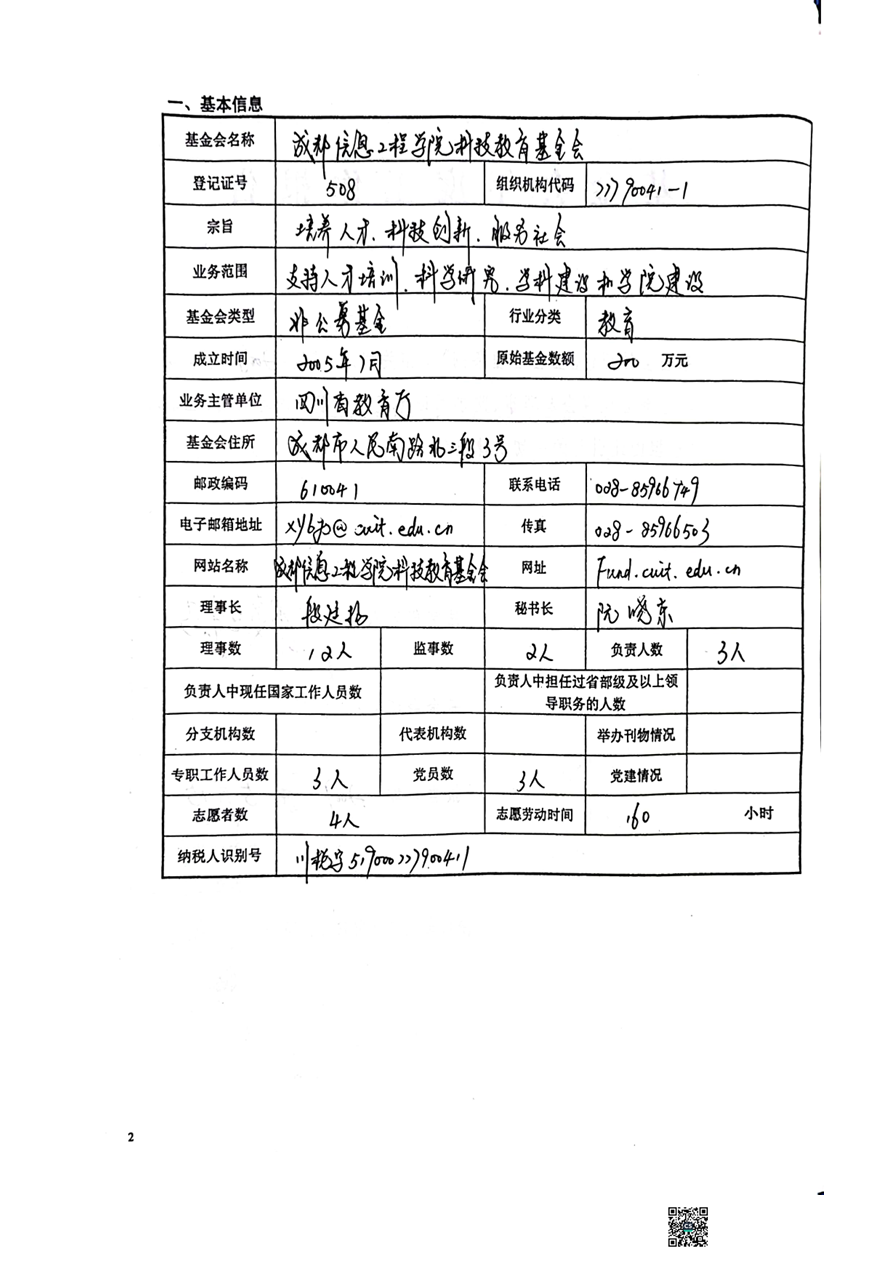 一、基本信息
基金会名称 成都信息工程学院科技教育基金会
登记证号 508 组织机构代码 77790041-1
宗旨 培养人才、科技创新、服务社会
业务范围 支持人才培训、科学研究、学科建设和学院建设
基金会类型 非公募基金 行业分类 教育
成立时间 2005年7月 原始基金数额 200 万元
业务主管单位 四川省教育厅
基金会住所 成都市人民南路北三段3号
邮政编码 610041 联系电话 028-85966749
电子邮箱地址 @cuit.edu.cn 传真 028-85966503
网站名称 成都信息工程学院科技教育基金会 网址 Fund.cuit.edu.cn
理事长 段廷扬 秘书长 阮晓东
理事数 12人 监事数 2人 负责人数 3人
负责人中现任国家工作人员数 负责人中担任过省部级及以上领
导职务的人数
分支机构数 代表机构数 举办刊物情况
专职工作人员数 3人 党员数 3人 党建情况
志愿者数 4人 志愿劳动时间 160 小时
纳税人识别号 川税字
2